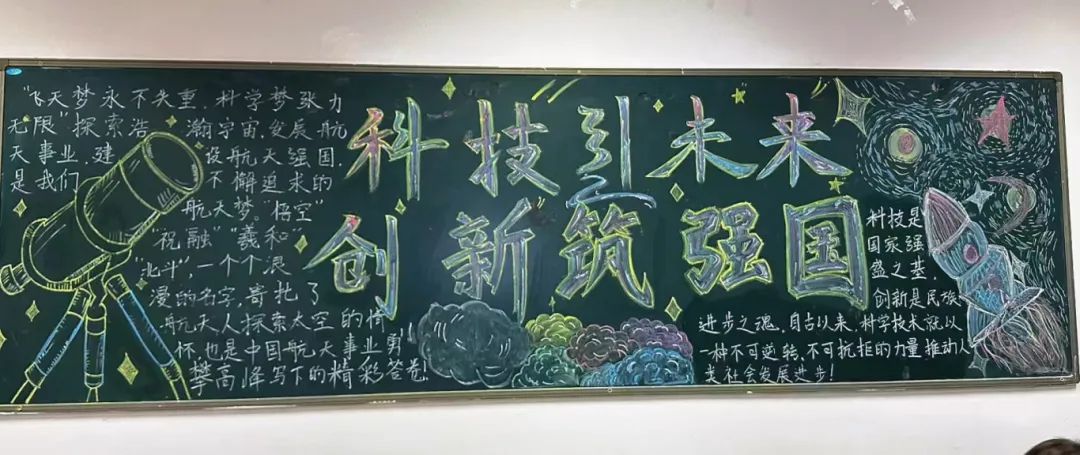 "飞天梦永不失重，科学梦张力
无限"探索浩瀚宇宙，发展航
天事业，建设航天强国，
是我们不懈追求的
航天梦。"悟空"
"祝融""羲和"
"北斗"，一个个浪
漫的名字，寄托了
航天人探索太空的情
怀，也是中国航天事业勇
攀高峰写下的精彩答卷！
科技引未来
创新筑强国
科技是
国家强
盛之基，
创新是民族
进步之魂，自古以来，科学技术就以
一种不可逆转、不可抗拒的力量推动人
类社会发展进步！